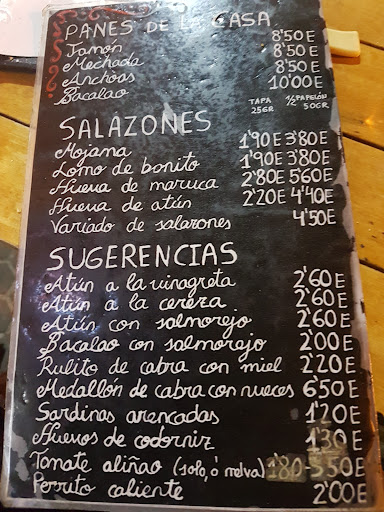 PANES DE LA CASA
Jamón 8'50E
Mechada 8'50E
Anchoas 8'50E
Bacalao 10'00E
TAPA 25GR ½ PAPELÓN 50GR
SALAZONES
Mojama 1'90E 3'80E
Lomo de bonito 1'90E 3'80E
Hueva de maruca 2'80E 5'60E
Hueva de atún 2'20E 4'40E
Variado de salazones 4'50E
SUGERENCIAS
Atún a la vinagreta 2'60E
Atún a la cereza 2'60E
Atún con salmorejo 2'60E
Bacalao con salmorejo 2'00E
Rulito de cabra con miel 2'20E
Medallón de cabra con nueces 6'50E
Sardinas arencadas 1'20E
Huevos de codorniz 1'30E
Tomate aliñao (solo, ó melva) 1'80-3'50E
Perrito caliente 2'00E